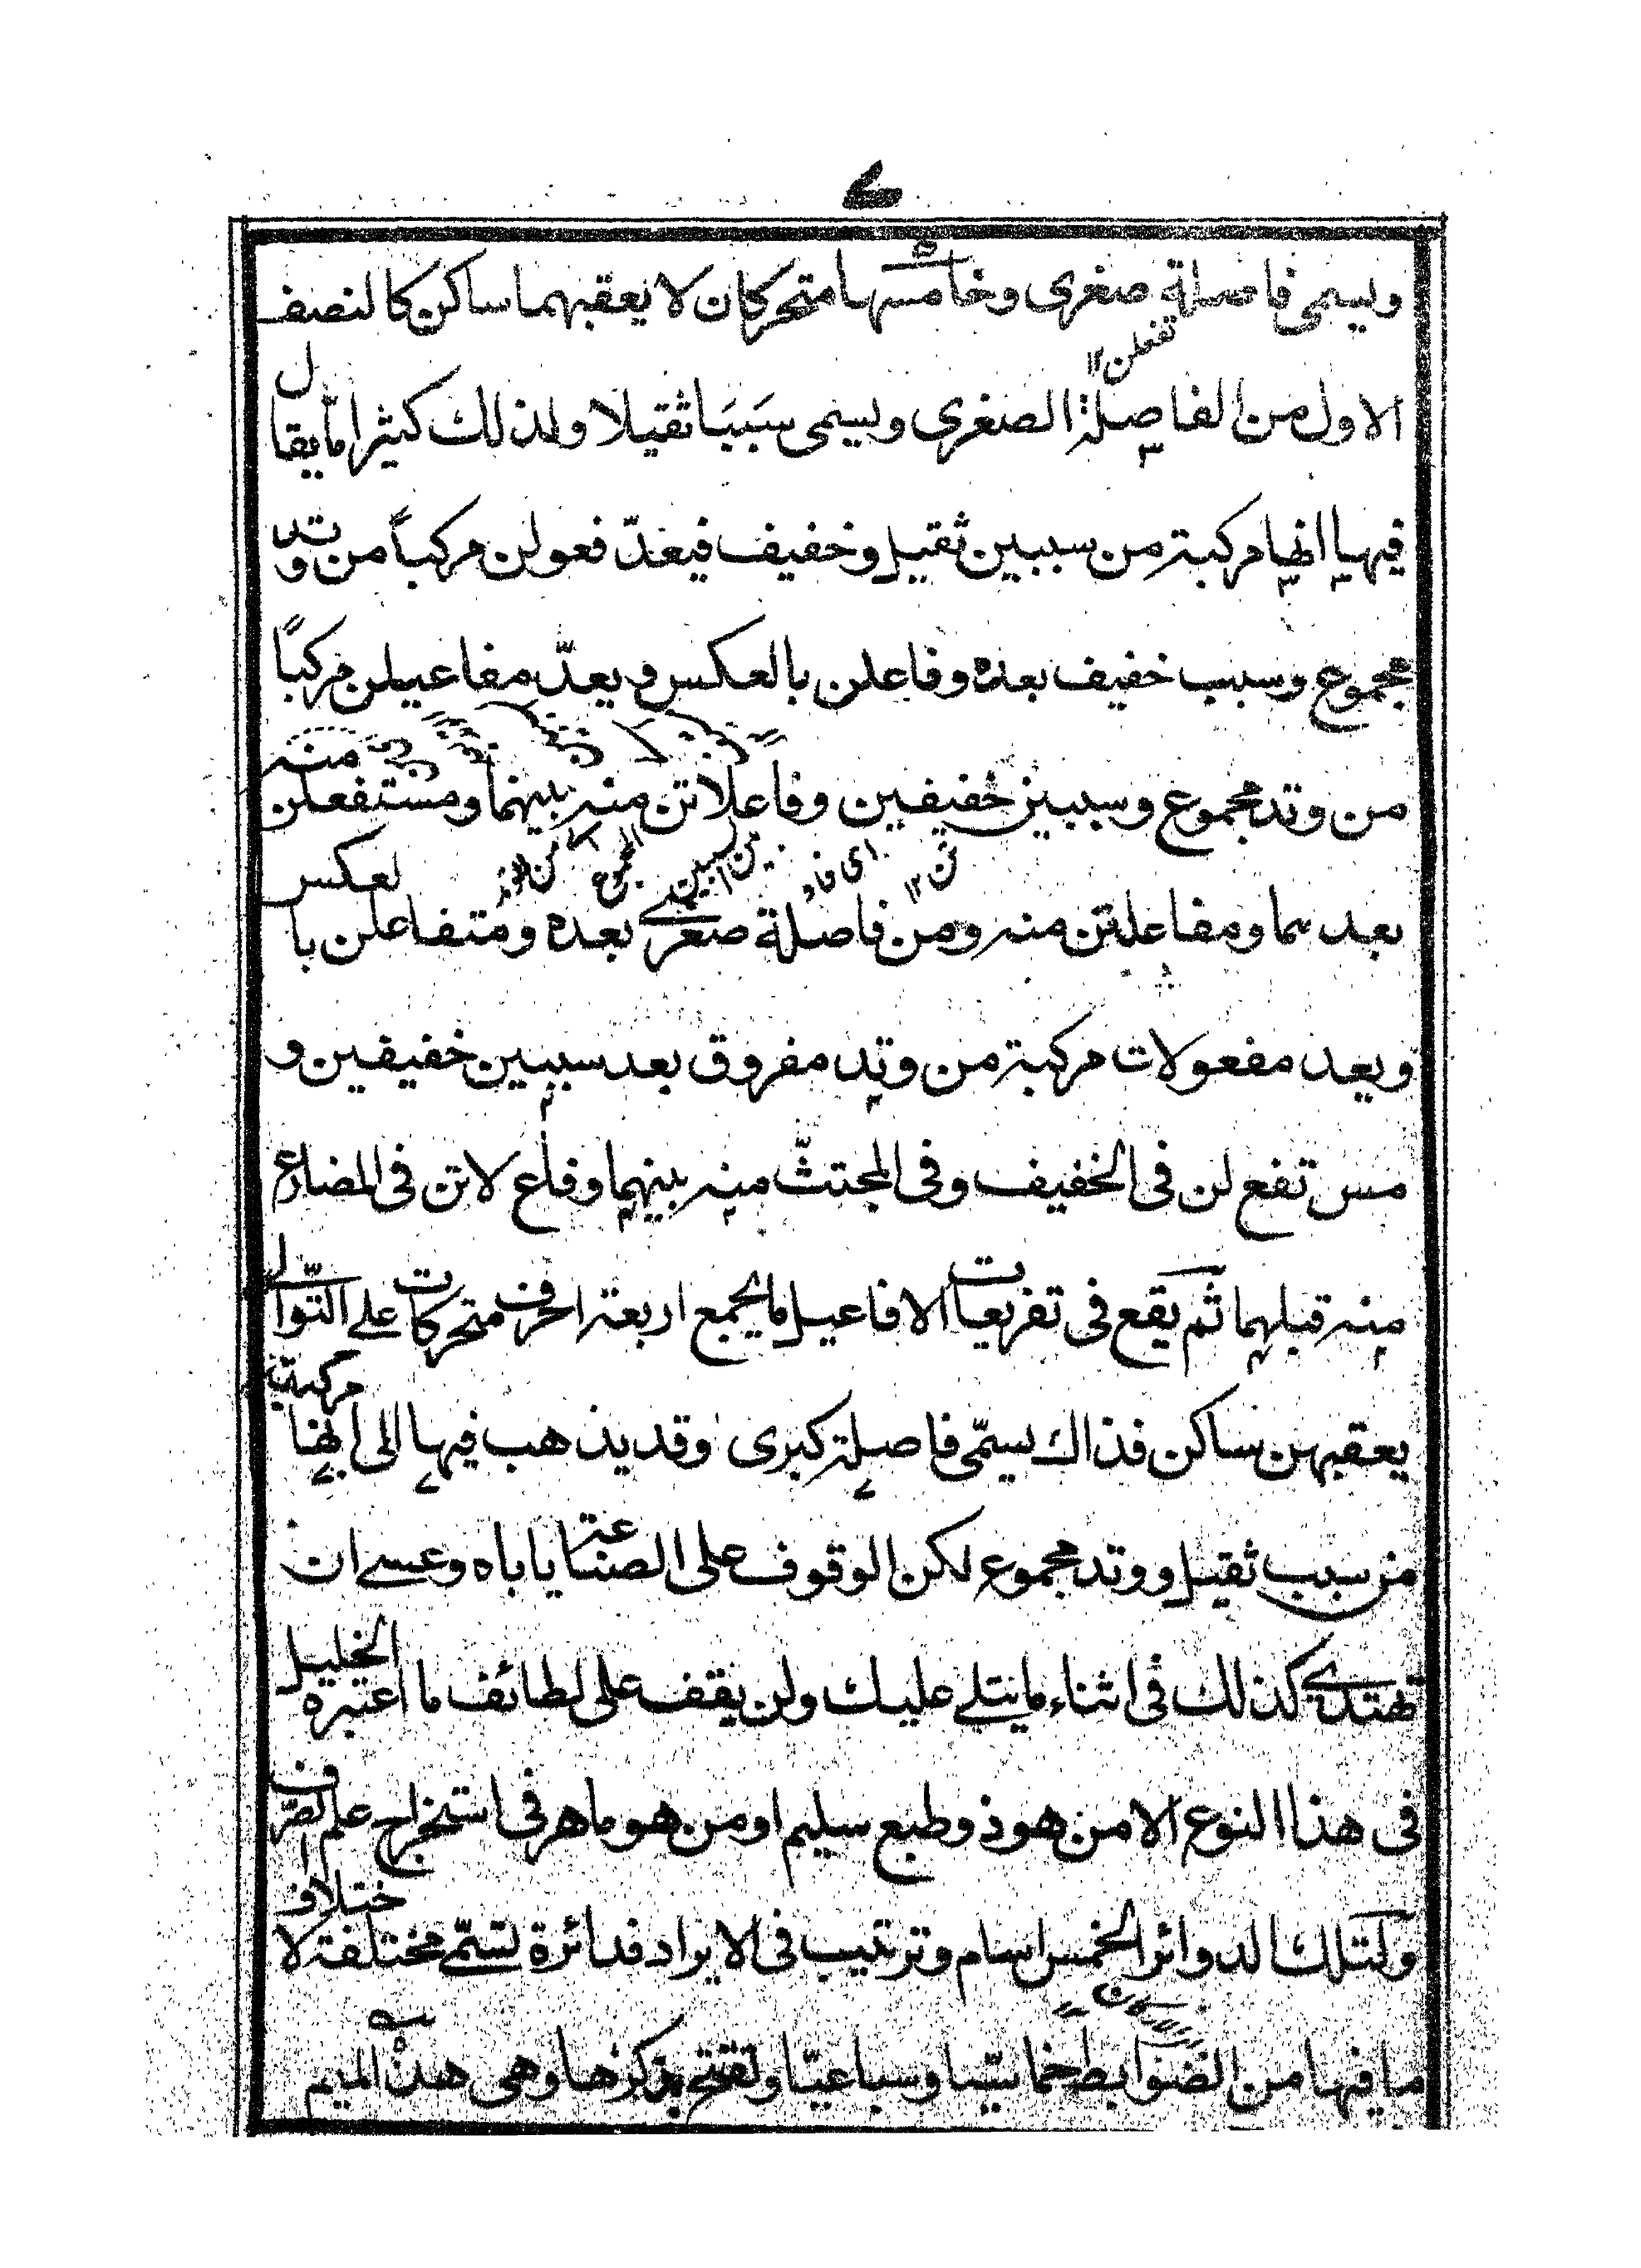 ويسمى فاصلة صغرى وخامسها متحركان لا يعقبهما ساكن كالنصف
تفعلن ١٢
الاول من الفاصلة الصغرى ويسمى سببا ثقيلا ولذلك كثيرا ما يقال
فيها انها مركبة من سببين ثقيل وخفيف فيعدّ فعولن مركباً من وتد
مجموع وسبب خفيف بعده وفاعلن بالعكس ويعدّ مفاعيلن مركباً
من وتد مجموع وسببين خفيفين وفاعلاتن منه بينهما ومستفعلن منه
بعدهما ومفاعلتن منه ومن فاصلة صغرى بعده ومتفاعلن بالعكس
ويعد مفعولات مركبة من وتد مفروق بعد سببين خفيفين و
مس تفع لن فى الخفيف وفى المجتثّ منه بينهما وفاع لاتن فى المضارع
منه قبلهما ثم يقع فى تفريعات الافاعيل ما يجمع اربعة احرف متحركات على التّوالى
يعقبهن ساكن فذاك يسمّى فاصلة كبرى وقد يذهب فيها الى انها مركبة
من سبب ثقيل ووتد مجموع لكن الوقوف على الصناعة ياباه وعسى ان
تهتدى كذلك فى اثناء ما يتلى عليك ولن يقف على لطائف ما اعتبره الخليل
فى هذا النوع الا من هو ذو طبع سليم او من هو ماهر فى استخراج علم الصّرف
ولتلك الدوائر الخمس اسام وترتيب فى الايراد فدائرة تسمّى مختلفة لاختلاف
ما فيها من الضوابط خماسيا وسباعيّا ونفتتح بذكرها وهى هذه الميم